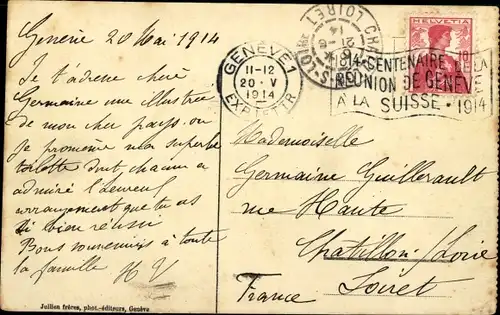 Genève 20 Mai 1914
Je t'adresse chère
Germaine une illustrée
de mon cher pays. ou
je promène ma superbe
toilette dont chacun a
admiré l'heureux
arrangement que tu as
si bien réussi
Bons souvenirs à toute
la famille H V
Jullien frères, phot.-éditeurs, Genève
GENÈVE 1
11-12
20·V
1914
EXP. LETTR.
LOIRET
HELVETIA
10
1814-CENTENAIRE DE LA
RÉUNION DE GENÈVE
À LA SUISSE · 1914
Mademoiselle
Germaine Guillerault
rue Haute
Chatillon s/Loire
Loiret
France